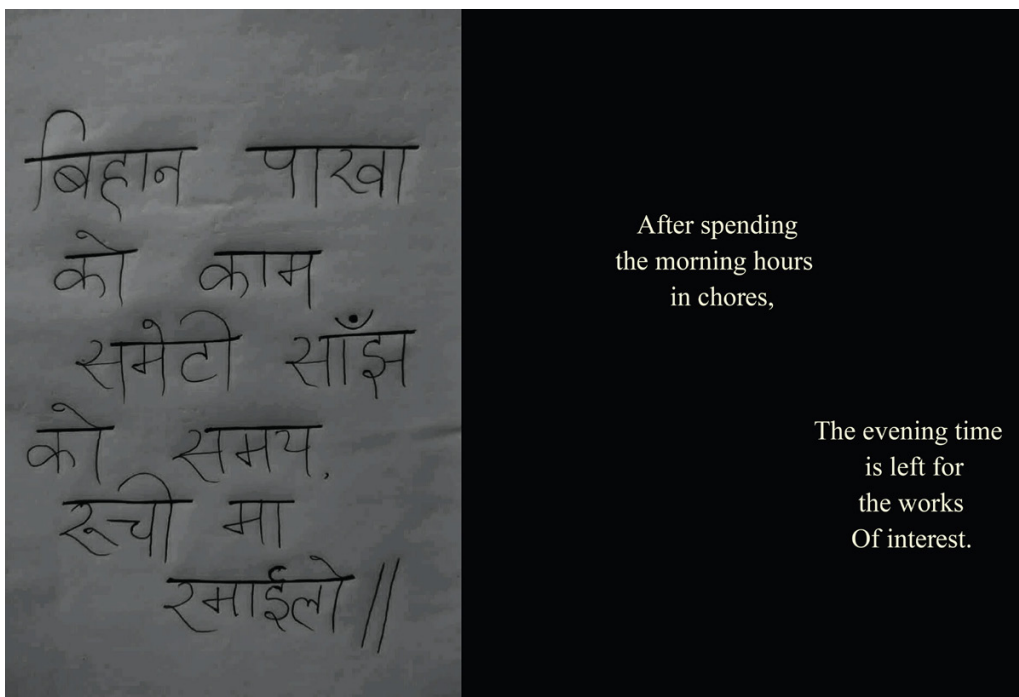 बिहान पाखा
को काम
समेटी साँझ
को समय,
रूची मा
रमाईलो //
After spending
the morning hours
in chores,
The evening time
is left for
the works
Of interest.